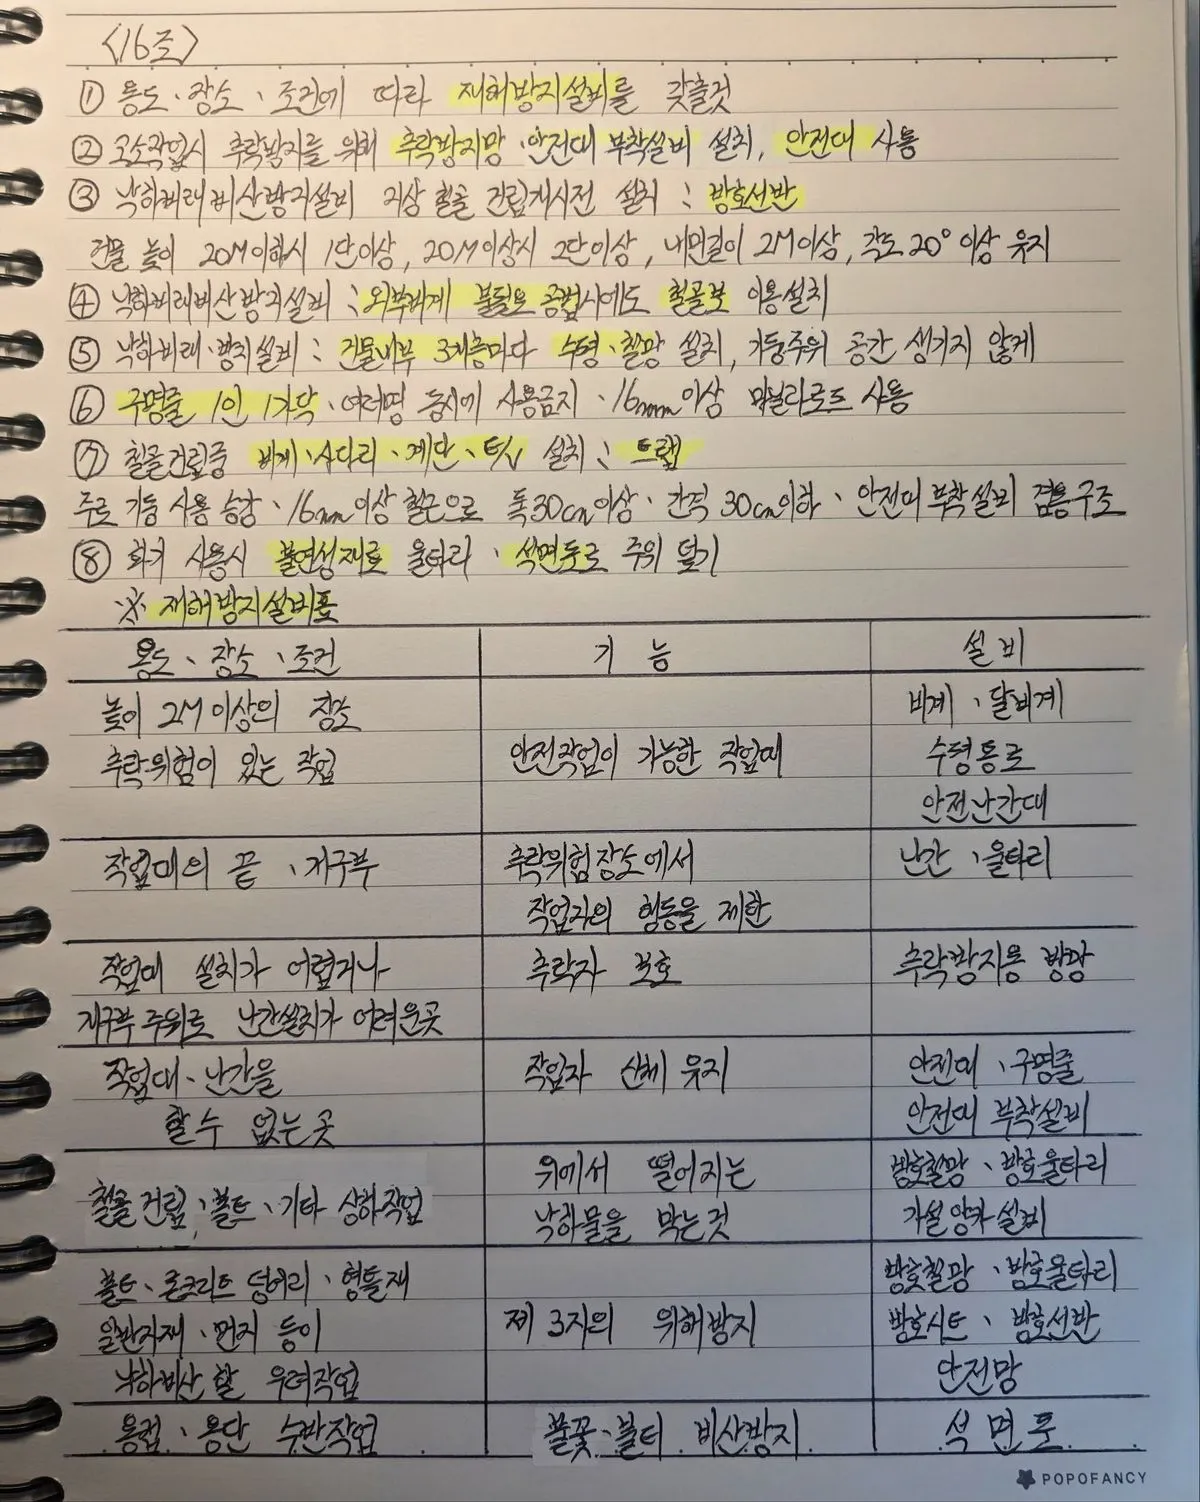 <16조>
① 용도、장소、조건에 따라 재해방지설비를 갖출것
② 고소작업시 추락방지를 위해 추락방지망、안전대 부착설비 설치, 안전대 사용
③ 낙하비래비산방지설비 지상 철골 건립개시전 설치 : 방호선반
건물 높이 20M이하시 1단이상, 20M이상시 2단이상, 내민길이 2M이상, 각도 20° 이상 유지
④ 낙하비래비산방지설비 : 외부비계 불필요 공법시에도 철골보 이용설치
⑤ 낙하비래、방지설비 : 건물내부 3개층마다 수평、철망 설치, 기둥주위 공간 생기지 않게
⑥ 구명줄 1인 1가닥、여러명 동시에 사용금지、16mm이상 마닐라로프 사용
⑦ 철골건립중 비계、사다리、계단、E/V 설치 : 트랩
주로 기둥 사용 승강、16mm이상 철근으로 폭30cm이상、간격 30cm이하、안전대 부착설비 겸용구조
⑧ 화기 사용시 불연성재료 울타리、석면포로 주위 덮기
※ 재해방지설비표
용도、장소、조건 기능 설비
높이 2M이상의 장소 비계、달비계
추락위험이 있는 작업 안전작업이 가능한 작업대 수평통로
안전난간대
작업대의 끝、개구부 추락위험장소에서 난간、울타리
작업자의 행동을 제한
작업대 설치가 어렵거나 추락자 보호 추락방지용 방망
개구부 주위로 난간설치가 어려운곳
작업대、난간을 작업자 신체 유지 안전대、구명줄
할수 없는 곳 안전대 부착설비
위에서 떨어지는 방호철망、방호울타리
철골 건립、볼트、기타 상하작업 낙하물을 막는것 가설앙카설비
볼트、콘크리트 덩어리、형틀재 방호철망、방호울타리
일반자재、먼지 등이 제 3자의 위해방지 방호시트、방호선반
낙하비산 할 우려작업 안전망
용접、용단 수반작업 불꽃、불티 비산방지 석면포
POPOFANCY